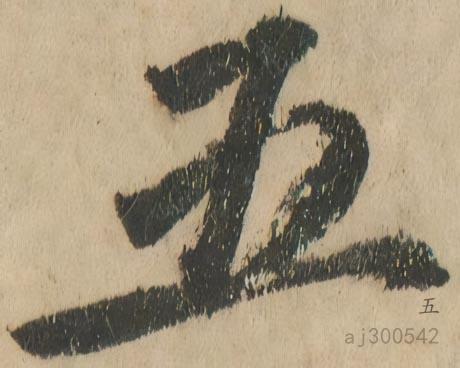 五
五
aj300542